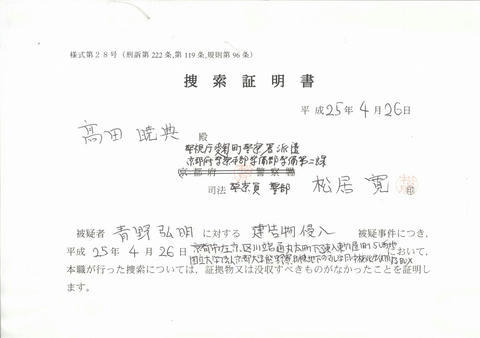 様式第28号(刑訴第222条,第119条,規則第96条)
捜索証明書
平成25年4月26日
高田暁典 殿
警視庁麹町警察署派遣
京都府警察本部警備部警備第二課
京都府 警察署
司法 警察員 警部 松居寛 印
被疑者 青野弘明 に対する 建造物侵入 被疑事件につき,
平成25年4月26日 京都市左京区川端通丸太町下る東入東丸太町
国立大学法人京都大学熊野寮 地下 BOX において,
本職が行った捜索については,証拠物又は没収すべきものがなかったことを証明し
ます。